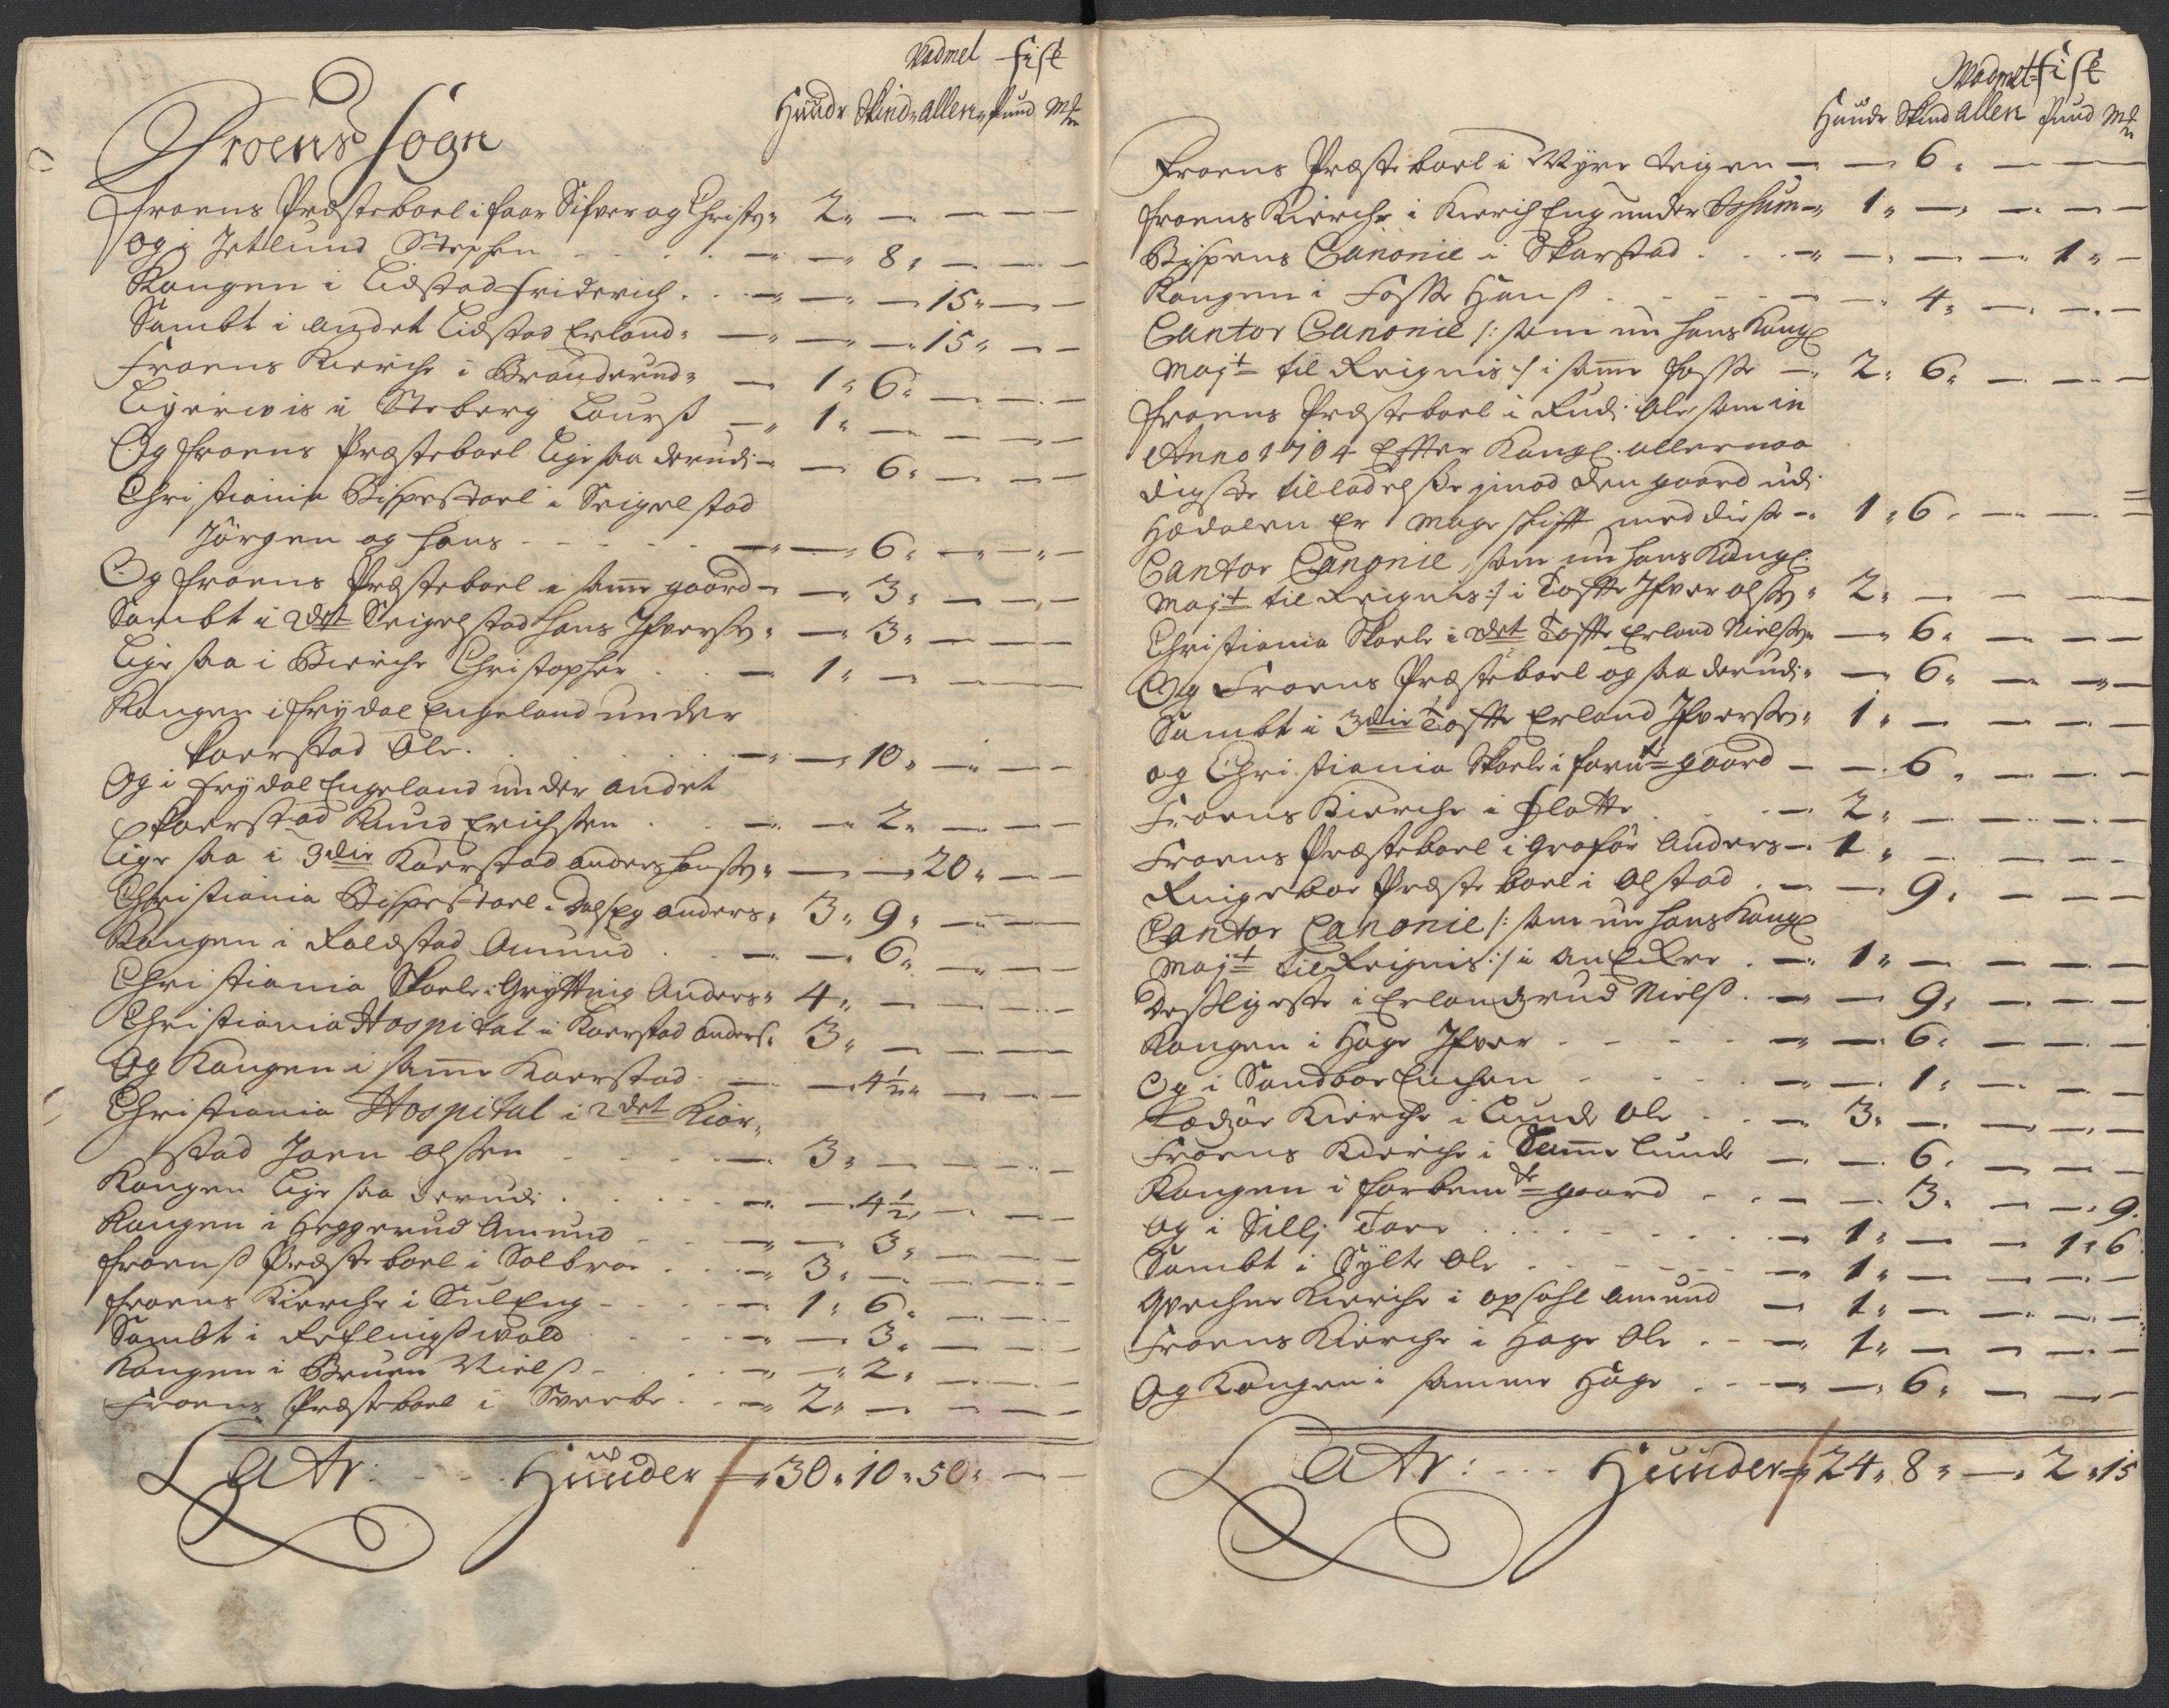 Wadmel fisk
Huude Skind allen pund Mk
Froens Sogn
Froens Præsteboel i faar Sifver og Christ: 2 " — — — —
og i Jetlund Stephen — 8 " — — —
Kongen i Lidstad Friderich — — 15 " — —
Sambt i andet Lidstad Erland — — 15 " — —
Froens Kierche i Brandrud — 1 " 6 " — — —
Ligerwis i Steberg Laurs — 1 " — — — —
Og Froens Præsteboel ligesaa derudi — 6 " — — —
Christiania Bispestoel i Seigelstad
Jørgen og Hans — — 6 " — — —
Og Froens Præsteboel i samme gaard — 3 " — — —
Sambt i 2det Seigelstad Hans Ifvers: — 3 " — —
Lige saa i Kierche Christopher — 1 " — — —
Kongen i Frydal Engeland under
Kaerstad Ole — — 10 " — — —
Og i Frydal Engeland under andet
Kaerstad Knud Erichsen — — 2 " — — —
Lige saa i 3die Kaerstad Anders Hans: — — 20 " — —
Christiania Bispestoel i Dalseg Anders 3 " 9 " — — —
Kongen i Faldstad Amund — — 6 " — — —
Christiania Skoele i Gryttnig Anders 4 " — — — —
Christiania Hospital i Kaerstad Anders 3 " — — —
Og Kongen i samme Kaerstad — — 4½ " — — —
Christiania Hospital i 2det Kior-
stad Joen Olsen — 3 " — — — —
Kongen lige saa derudi — — 4½ — — —
Kongen i Heggerud Amund — — 3 " — — —
Froens Præsteboel i Solbroe — 3 " — — — —
Froens Kierche i SulEng — 1 " 6 " — — —
Sambt i Refling — — 3 " — — —
Kongen i Bruen Niels — — 2 " — — —
Froens Præsteboel i Sverbe — 2 " — — — —
Latr: Huuder 30 " 10 " 50 " — —
Wadmel fisk
Huude Skind allen pund Mk
Froens Præsteboel i Myre teigen — — 6 " — — —
Froens Kierche i Kierch Eng under — 1 " — — — —
Bispens Canonie i Skarstad — — — — 1 " —
Kongen i Fosse Hans — — 4 " — — —
Cantor Canonie /: som nu hans Kongl
Majt til Reignis :/ i samme Fosse — 2 " 6 " — — —
Froens Præsteboel i Rudi Ole som in
Anno 1704 Efter Kongl. allernaa
digste tilladelsse imod den gaard udi
Hædalen Er Mageskift med diesse — 1 " 6 " — — —
Cantor Canonie, som nu hans Kongl.
Majt til Reignis :/ i Tofte Ifver Ols: 2 " — — —
Christiania Skoele i 2det Tofte Erland Niels: — 6 " — — —
Og Froens Præsteboel og saa derudi — 6 " — — —
Sambt i 3die Tofte Erland Ifvers: 1 " — — — —
og Christiania Skoele i forn:te gaard — — 6 " — — —
Froens Kierche i Flatte — 2 " — — — —
Froens Præsteboel i Grafør Anders — 1 " — — — —
Ringeboe Præsteboel i Olstad — — 9 " — — —
Cantor Canonie /: som nu hans Kongl
Majt til Reignis :/ i — 1 " — — — —
Desligeste i Erlandsrud Niels — — 9 " — — —
Kongen i Hage Ifver — — 6 " — — —
Og i Sandboe — — 1 " — — —
Kierche i Lunde Ole — 3 " — — — —
Froens Kierche i Samme Lunde — — 6 " — — —
Kongen i forbem:te gaard — — 3 " — — 9
og i Sillj Tore — 1 " — — 1 " 6
Sambt i Sylte Ole — 1 " — — — —
Qvechne Kierche i Opsahl Amund — 1 " — — — —
Froens Kierche i Hage Ole — 1 " — — — —
Og Kongen i samme Hage — — 6 " — — —
Latr: Huuder 24 " 8 " — 2 " 15